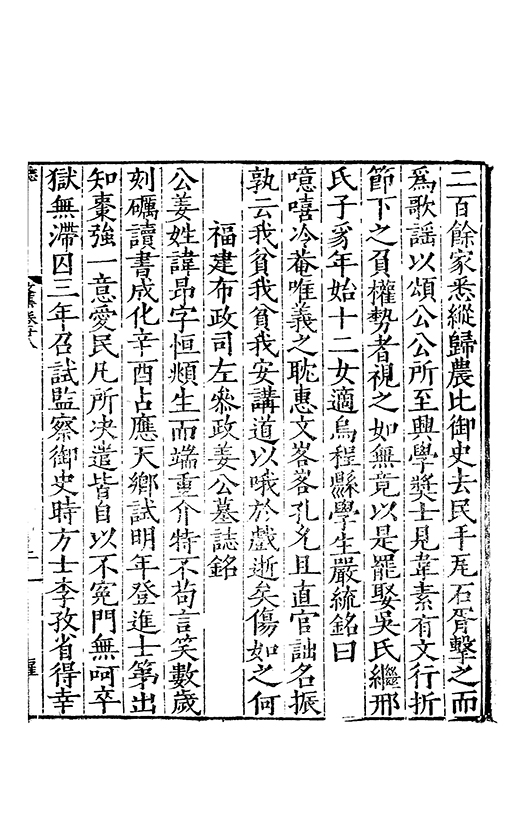 二百餘家悉縱歸農比御史去民手瓦石胥擊之而
爲歌謠以頌公公所至興學奬士見韋素有文行折
節下之負權勢者視之如無竟以是罷娶吳氏繼邢
氏子豸年始十二女適烏程縣學生嚴統銘曰
噫嘻冷菴唯義之耽惠文峇峇孔允且直官詘名振
孰云我貧我貧我安講道以哦於戲逝矣傷如之何
福建布政司左叅政姜公墓誌銘
公姜姓諱昂字恒頫生而端重介特不苟言笑數歲
刻礪讀書成化辛酉占應天鄉試明年登進士第出
知棗強一意愛民凡所决遣皆自以不寃門無呵卒
獄無滯囚三年召試監察御史時方士李孜省得幸